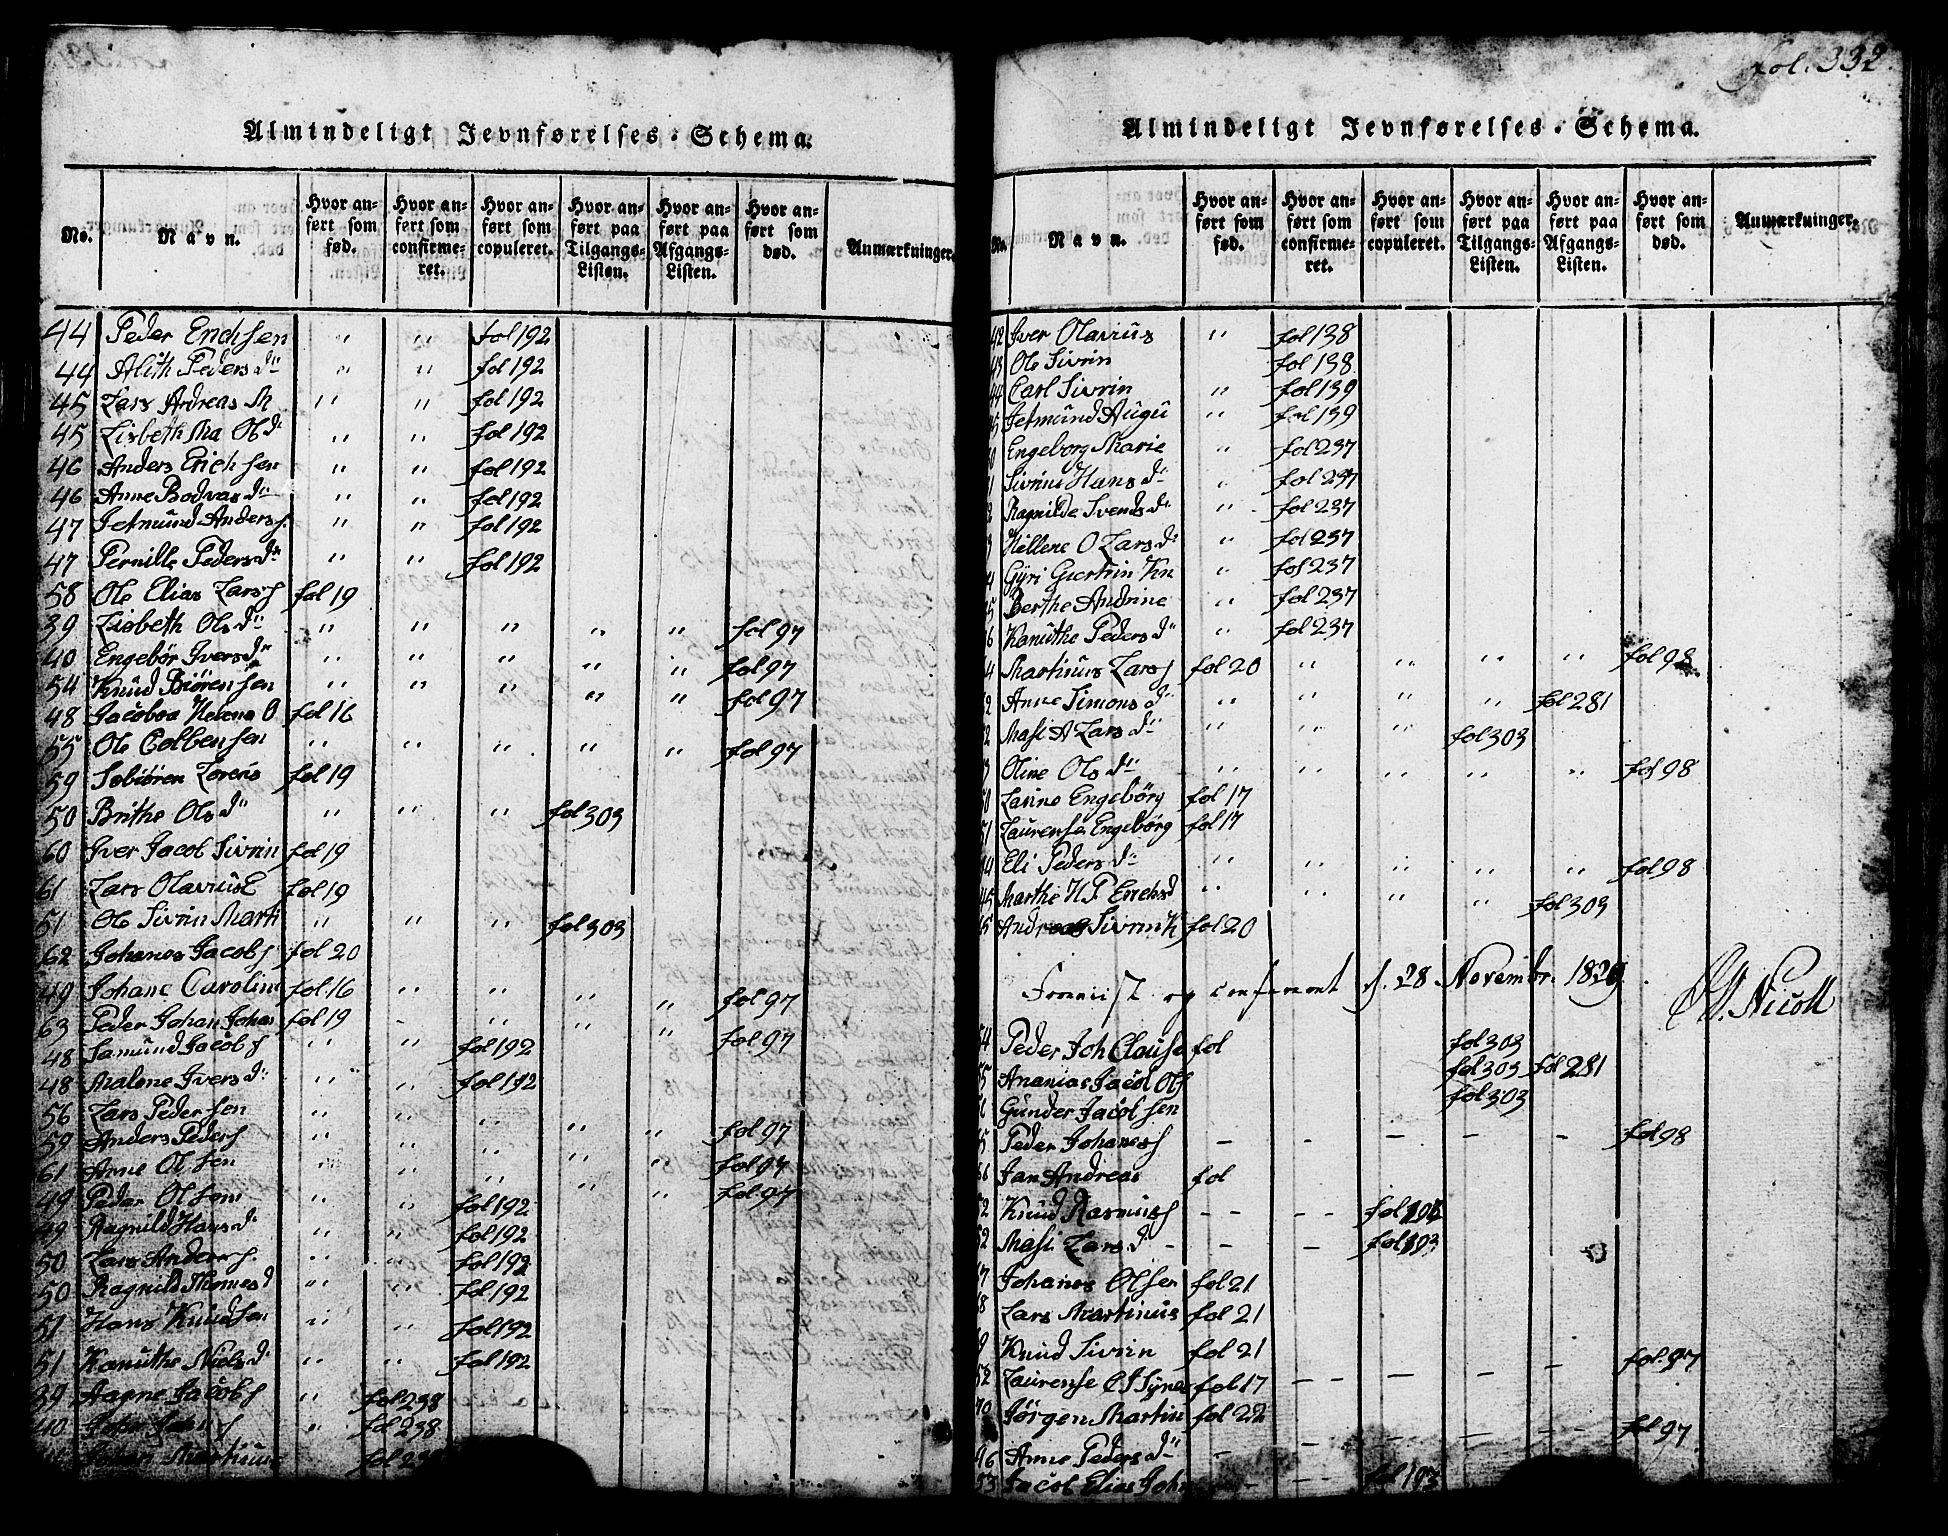 Almindeligt Jevnførelses-Schema.
No. Navn. Hvor anført som fød. Hvor anført som confirmeret. Hvor anført som copuleret. Hvor anført paa Tilgangs-Listen. Hvor anført paa Afgangs-Listen. Hvor anført som død. Anmærkninger.
44 Peder Erichsen " " fol 192
44 Alith Pedersdr " " fol 192
45 Lars Andreas M " " fol 192
45 Lisbeth Ma Olsdr " " fol 192
46 Anders Erichsen " " fol 192
46 Anne Bodvarsdr " " fol 192
47 Jetmund Anders s. " " fol 192
47 Pernille Pedersdr " " fol 192
58 Ole Elias Lars s fol 19
39 Lisbeth Olsdr " " " " " fol 97
40 Engebør Iversdr " " " " " fol 97
54 Knud Biørensen " " " " " fol 97
48 Jacobea Helena O fol 16
55 Ole Colbensen " " " " " fol 97
59 Sebiøren Lorens fol 19
50 Brithe Olsdr " " " fol 303
60 Iver Jacob Sivrin fol 19
61 Lars Olavius E fol 19
51 Ole Sivrin Marti " " " fol 303
62 Johanes Jacobs fol 20
49 Johane Carolin fol 16 " " " " fol 97
63 Peder Johan Johan fol 19 - " " " fol 97
48 Samund Jacobs " " fol 192
48 Malene Iversdr " " fol 192
56 Lars Pedersen " " " " " fol 97
59 Anders Peders " " " " " fol 97
61 Arne Olsen " " " " " fol 97
49 Peder Olsen " " fol 192
49 Ragnild Hansdr " " fol 192
50 Lars Anders s. " " fol 192
50 Ragnild Thomesd " " fol 192
51 Hans Knudsen " " fol 192
51 Kanuthe Nielsdr " " fol 192
39 Aagne Jacobs " fol 238
40 " fol 238
Johan Martinus fol 238
fol. 332
Almindeligt Jevnførelses-Schema.
No. Navn. Hvor anført som fød. Hvor anført som confirmeret. Hvor anført som copuleret. Hvor anført paa Tilgangs-Listen. Hvor anført paa Afgangs-Listen. Hvor anført som død. Anmærkninger.
42 Iver Olavius " fol 138
43 Ole Sivrin fol 138
44 Carl Sivrin " fol 139
Jetmund Augu " fol 139
Engeborg Marie " fol 237
Sivrine Hansdr " fol 237
Ragnilde Svendsdr " fol 237
Hellene O Larsdr " fol 237
Gÿri Giertrin Kn " fol 237
Berthe Andrine " fol 237
Kanuthe Pedersdr " fol 237
Martinus Lars s fol 20 " " " " fol 98
Anne Simonsdr " " " " fol 281
Masi A Larsdr " " " fol 303
Oline Olsdr " " " " " fol 98
Larine Engebørg fol 17
51 Laurense Engebørg fol 17
Eli Pedersdr " " " " " fol 98
45 Marthe H P Erichsd " " " " fol 303
Andreas Sivrin K fol 20
d. 28 Novembr. 1829.
Nicoll
54 Peder Joh Clause fol fol 303
55 Ananias Jacob Ols fol 303 fol 281
Gunder Jacobsen fol 303
Peder Johanes s - - - - - fol 98
66 Jan Andreas fol
52 Knud Rasmus s - - - - fol 193
52 Masi Larsd - - - fol 193
Johanes Olsen fol 21
Lars Martinus fol 21
Knud Sivrin fol 21 fol. 97
52 Laurense fol 17 - - - - -
70 Jørgen Martin fol 22 fol 97
46 Anne Pedersdr - - - - -
53 Jacob Elias Joh - - fol 193